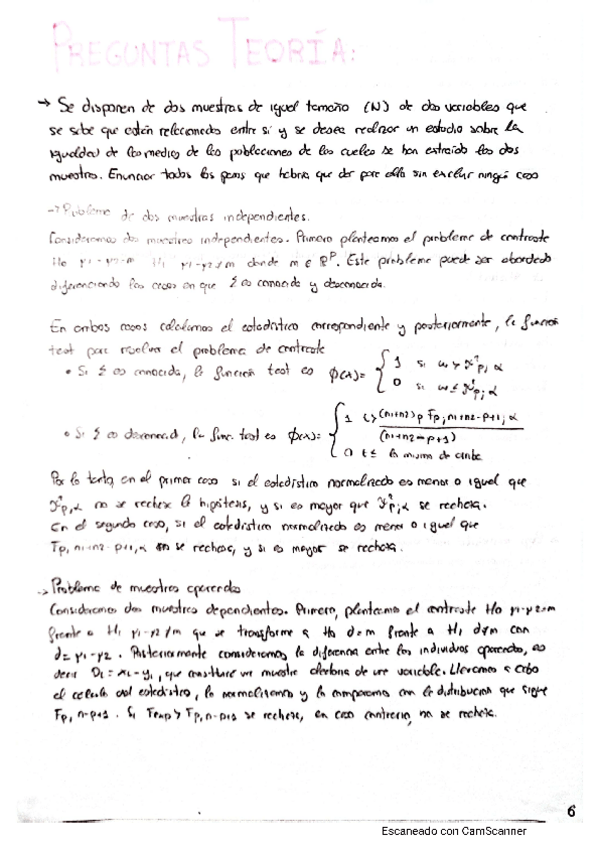 PREGUNTAS TEORÍA:
→ Se disponen de dos muestras de igual tamaño (N) de dos variables que
se sabe que están relacionadas entre sí y se desea realizar un estudio sobre la
igualdad de las medias de las poblaciones de las cuales se han extraído las dos
muestras. Enunciar todos los pasos que habría que dar para ello sin excluir ningún caso
→ Problema de dos muestras independientes.
Consideramos dos muestras independientes. Primero planteamos el problema de contraste
H0 μ1-μ2=m H1 μ1-μ2≠m donde m ∈ R^p. Este problema puede ser abordado
diferenciando los casos en que Σ es conocida y desconocida.
En ambos casos calculamos el estadístico correspondiente y posteriormente, la función
test para resolver el problema de contraste
• Si Σ es conocida, la función test es φ(x)= { 1 si w > χ²p,α
0 si w ≤ χ²p,α
• Si Σ es desconocid, la func. test es φ(x)= { 1 t> (n1+n2)p Fp,n1+n2-p+1,α / (n1+n2-p+1)
0 t≤ lo mismo de arriba
Por lo tanto, en el primer caso si el estadístico normalizado es menor o igual que
χ²p,α no se rechaza la hipótesis, y si es mayor que χ²p,α se rechaza.
En el segundo caso, si el estadístico normalizado es menor o igual que
Fp,n1+n2-p+1,α no se rechaza, y si es mayor se rechaza.
→ Problema de muestras apareadas
Consideramos dos muestras dependientes. Primero, planteamos el contraste H0 μ1-μ2=m
frente a H1 μ1-μ2≠m que se transforma a H0 d=m frente a H1 d≠m con
d=μ1-μ2. Posteriormente consideramos la diferencia entre los individuos apareados, es
decir Di = xi-yi, que constituye una muestra aleatoria de una variable. Llevamos a cabo
el cálculo del estadístico, lo normalizamos y lo comparamos con la distribución que sigue
Fp,n-p+1. Si Fexp > Fp,n-p+1 se rechaza, en caso contrario, no se rechaza.
6
Escaneado con CamScanner